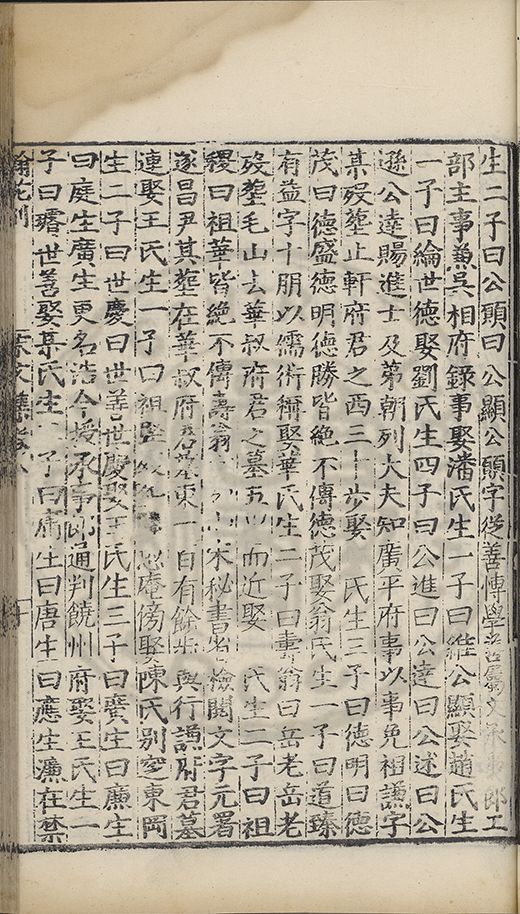 生二子曰公頤曰公顯公頤字從善博學善屬文承事郎工
部主事兼吳相府錄事娶潘氏生一子曰維公顯娶趙氏生
一子曰綸世德娶劉氏生四子曰公進曰公達曰公述曰公
遜公達賜進士及第朝列大夫知廣平府事以事免祖謙字
某歿塟止軒府君之西三十步娶 氏生三子曰德明曰德
茂曰德盛德明德勝皆絶不傳德茂娶翁氏生一子曰道臻
有益字十朋以儒術衒娶華氏生二子曰壽翁曰岳老岳老
歿塟毛山去華叔府君之墓五 而近娶 氏生二子曰祖
稷曰祖華皆絶不傳壽翁 宋秘書省檢閱文字元署
遂昌尹其塟在華叔府君墓東一百有餘步與行謙府君墓
連娶王氏生一子曰祖 庵傍娶陳氏别室東岡
生二子曰世慶曰世善世慶娶王氏生三子曰賡生曰廉生
曰庭生廣生更名浩今授承事郎通判饒州府娶王氏生一
子曰璿世善娶某氏生 子曰庸生曰唐生曰應生濂在禁
翰苑别 宋文集卷八